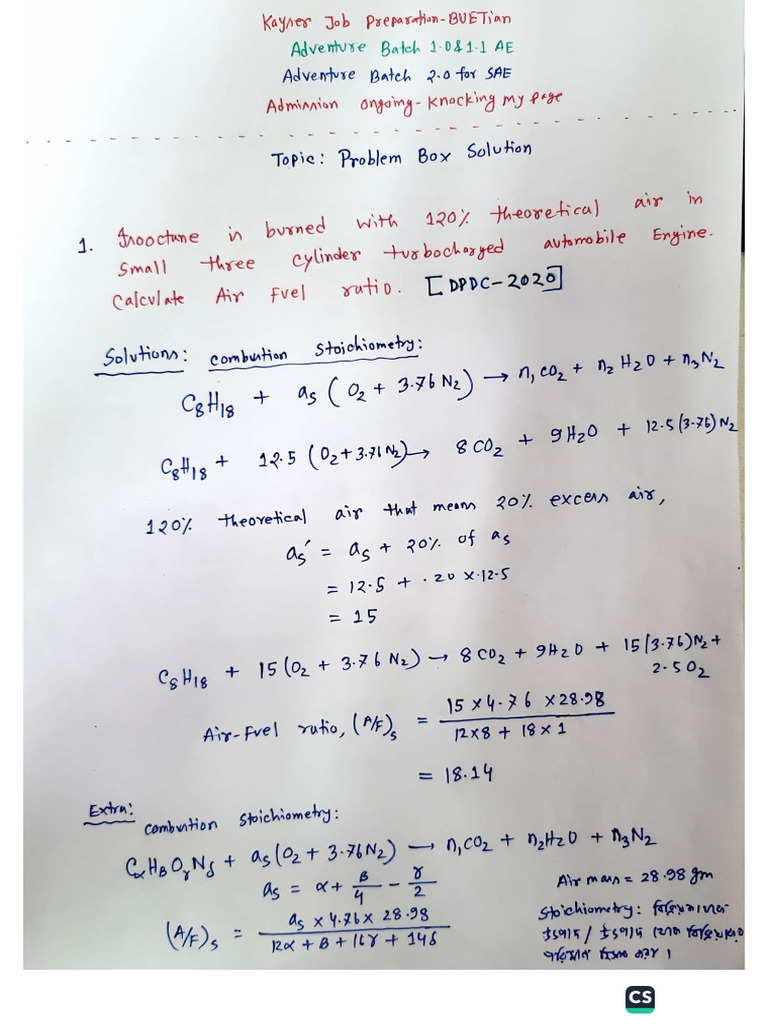 Kayser Job Preparation-BUETian
Adventure Batch 1.0&1.1 AE
Adventure Batch 2.0 for SAE
Admission ongoing-Knocking my page
Topic: Problem Box Solution
1. Isooctane is burned with 120% theoretical air in
small three cylinder turbocharged automobile Engine.
Calculate Air Fuel ratio. [DPDC-2020]
Solutions: combustion Stoichiometry:
C₈H₁₈ + aₛ (O₂ + 3.76 N₂) → n₁CO₂ + n₂ H₂O + n₃N₂
C₈H₁₈ + 12.5 (O₂+3.76N₂) → 8CO₂ + 9H₂O + 12.5(3.76)N₂
120% theoretical air that means 20% excess air,
aₛ' = aₛ + 20% of aₛ
= 12.5 + .20 ×12.5
= 15
C₈H₁₈ + 15(O₂ + 3.76 N₂) → 8CO₂ + 9H₂O + 15(3.76)N₂ +
2.5O₂
Air-Fuel ratio, (A/F)ₛ = 15×4.76×28.98 / 12×8 + 18×1
= 18.14
Extra:
Combustion Stoichiometry:
CαHβOγNδ + aₛ(O₂ + 3.76N₂) → n₁CO₂ + n₂H₂O + n₃N₂
aₛ = α + β/4 - γ/2
(A/F)ₛ = aₛ × 4.76 × 28.98 / 12α + β + 16γ + 14δ
Air mass = 28.98 gm
Stoichiometry:
CS